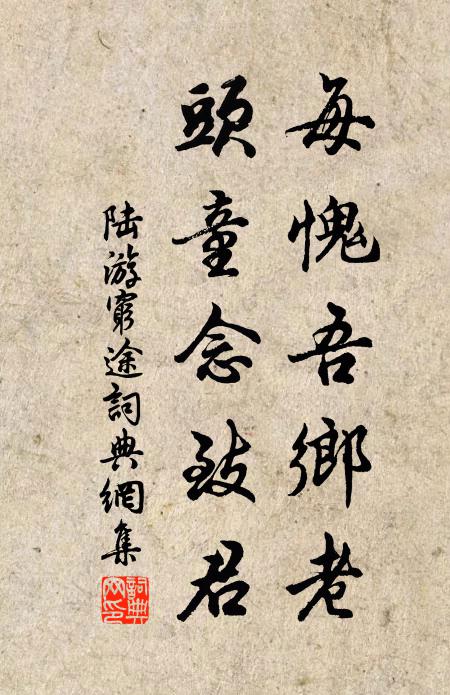 每愧吾鄉老
頭童念致君
陆游窮途詞典網集
詞典網印